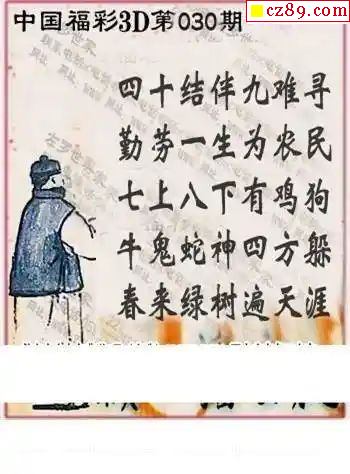 cz89.com
中国福彩3D第030期
四十结伴九难寻
勤劳一生为农民
七上八下有鸡狗
牛鬼蛇神四方躲
春来绿树遍天涯